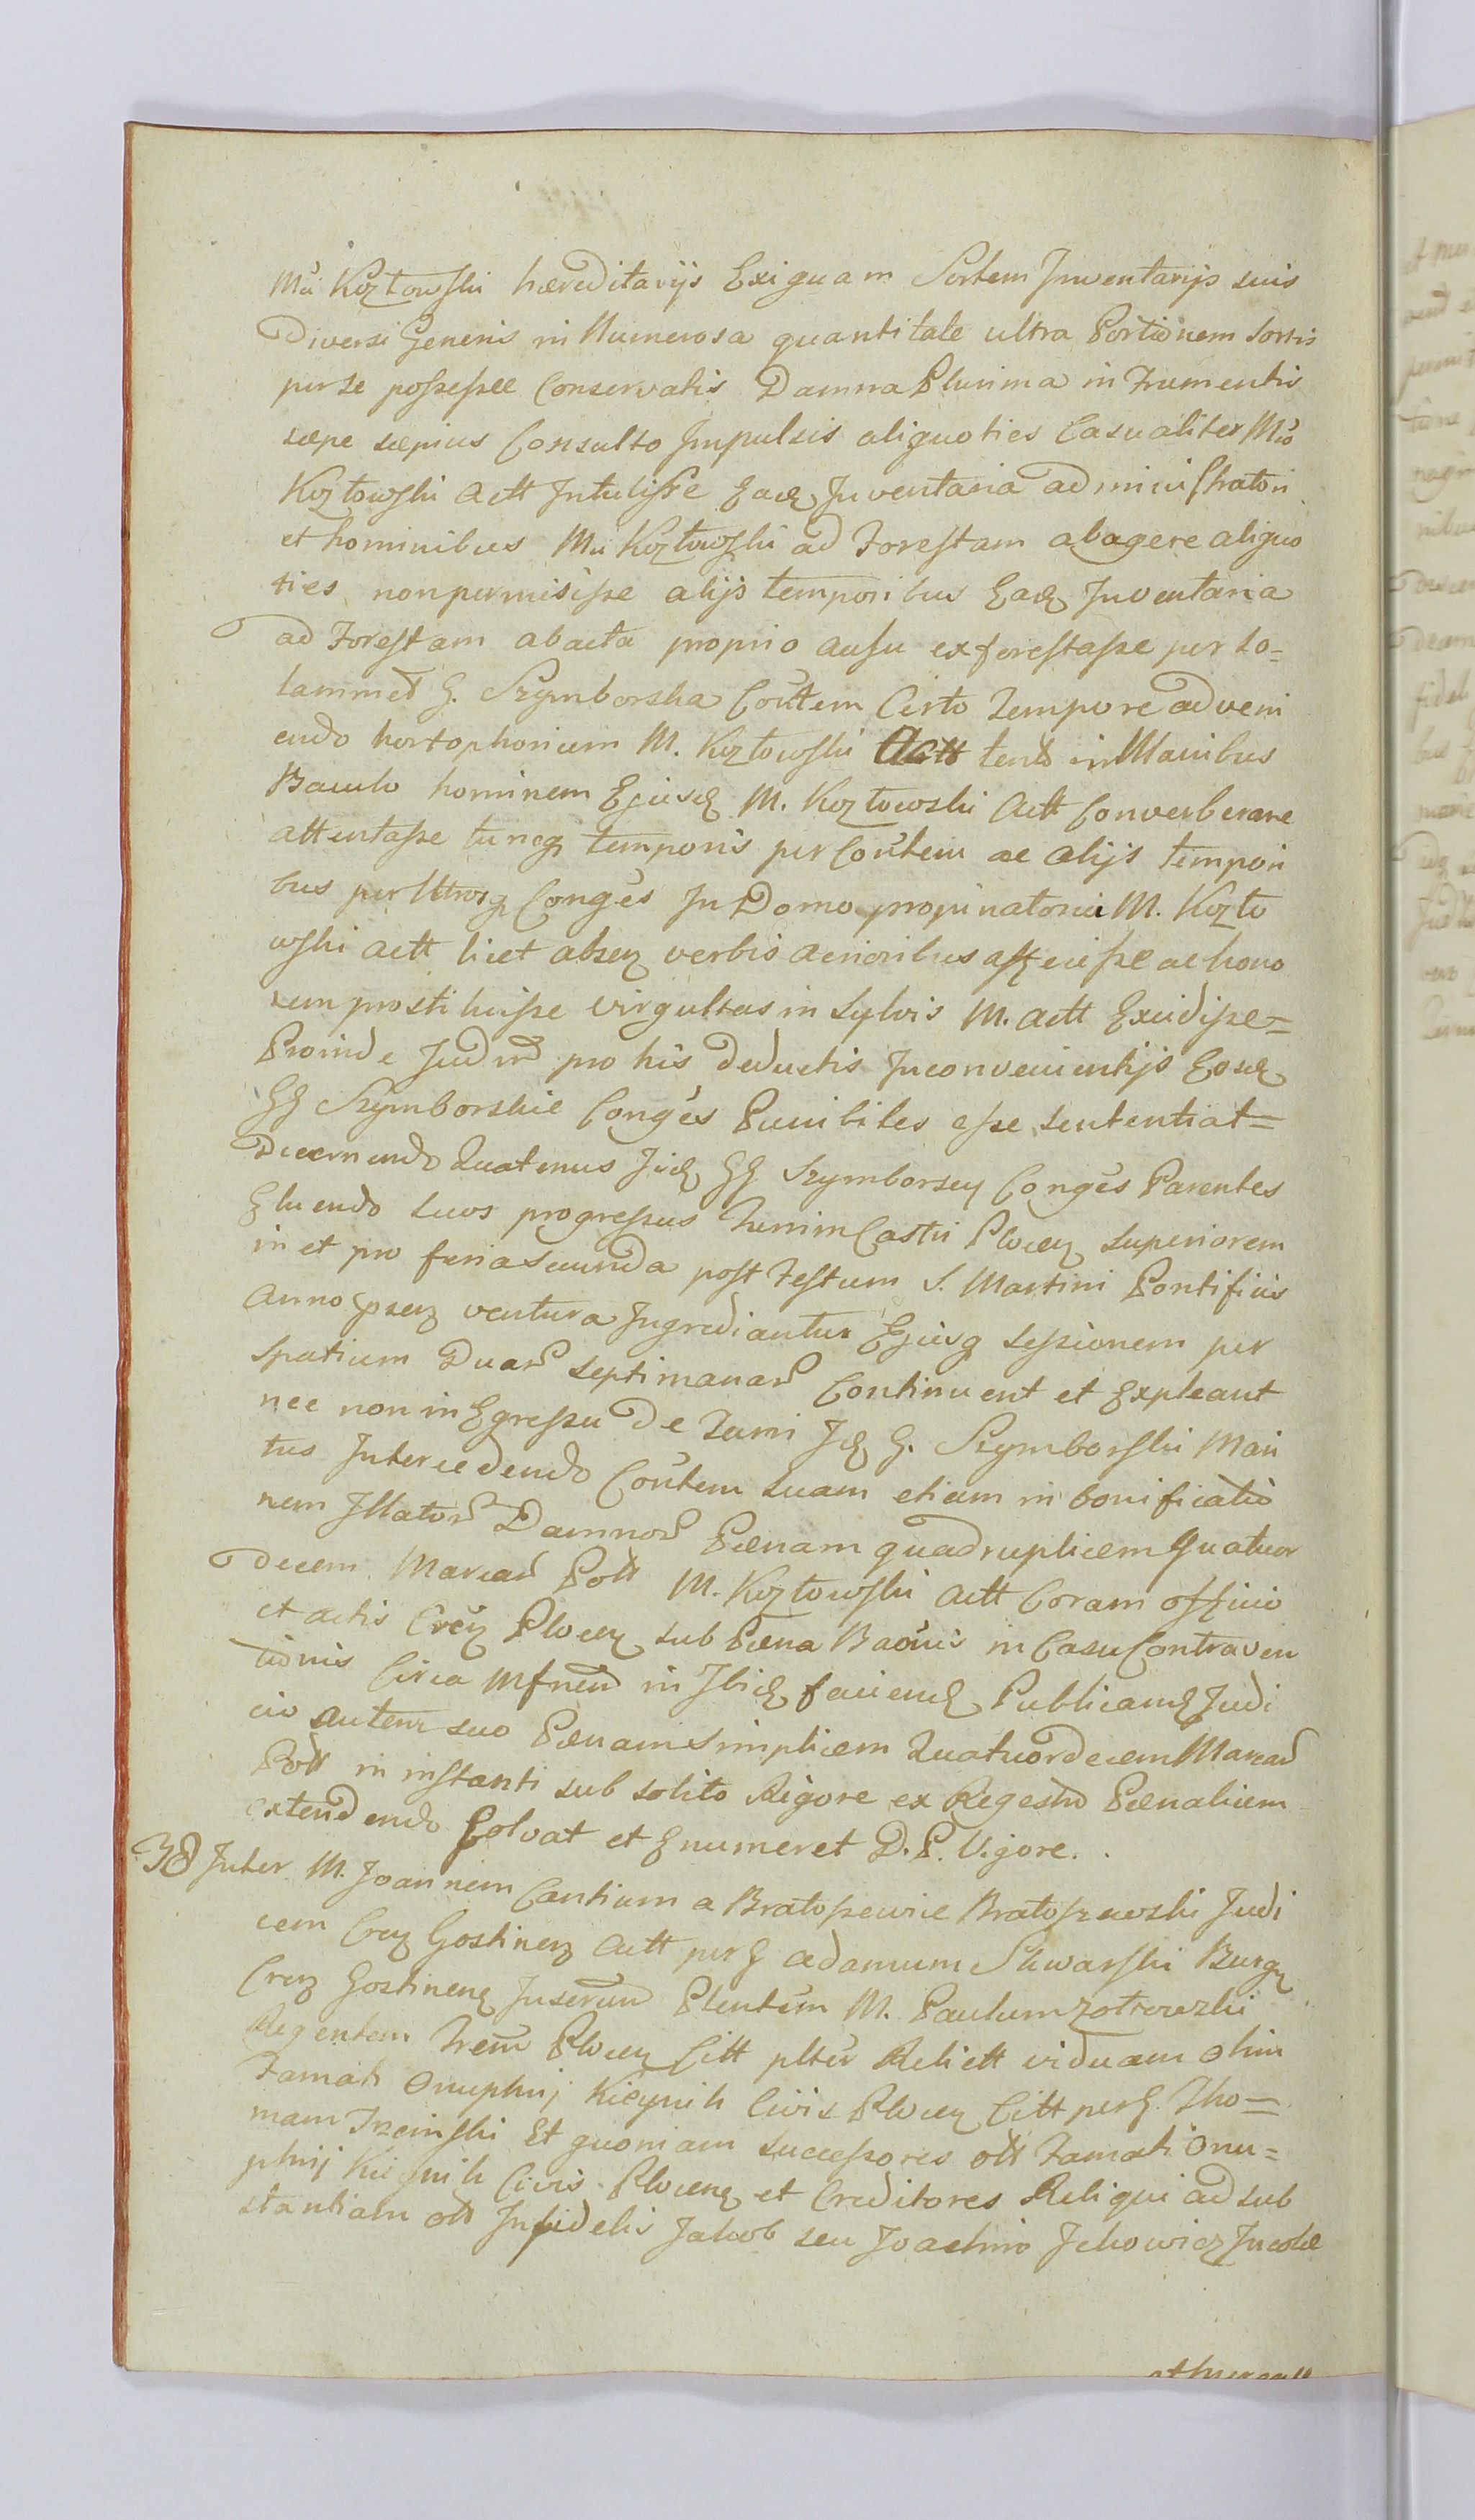 Mu Kozłowski hæreditarijs Exiguam Sortem Inventarijs suis
Diversi Generis in Numerosa quantitate ultra Portionem Sortis
per se possessæ Conservatis Damna Plurima in Frumentis
sæpe sæpius Consulto Impulsis aliquoties Casualiter Mco
Kozłowski Actt Intulisse Eadq Inventaria administratori
et hominibus Mci Kozłowski ad Forestam abagere aliquo
ties non permisisse alijs temporibus Eadq Inventaria
ad Forestam abacta proprio ausu exforestasse per So=
lammet G. Szymborska Contem Certo Tempore adveni
endo hortophorium M. Kozłowski tend in Manibus
Baculo hominem Ejusdq M. Kozłowski Actt Converberare
attentasse tuncq temporis per Contem ac alijs tempori
bus per Utrosq Conges In Domo propinatoria M. Kozło
wski actt licet absen verbis acrioribus affecisse ac hono
rem prostituisse virgultas in Sylvis M. actt Excidisse=
Proinde Judm pro his deductis Inconvenientijs Eosdq
GG Szymborskie Conges Punibiles esse sententiat=
Decernendo Quatenus Jidq GG Szymborscy Conges Parentes
Eluendo suos progressus Turrim Castri Plocen superiorem
in et pro feria secunda post Festum S. Martini Pontificis
Anno prsen ventura Ingrediantur Ejusq sessionem per
Spatium Duar septimanar Continuent et Expleant
nec non in Egressu De Turri Jdq G. Szymborski Mari
tus Intercedendo Contem suam etiam in bonificatio
nem Illator Damnor Pænam quadruplicem Quatuor
decem Marcar Poll M. Kozłowski Actt Coram officio
et actis Cren Plocen sub Pæna Baonis in Casu Contraven
tionis Circa Mfnem in Ibidq faciendq Publicandq Judi
cio autem suo Pænam Simplicem Quatuordecem Marcar
Poll in instanti sub solito Rigore ex Regestro Pænalium
extendendo Solvat et Enumeret D. P. Vigore. .
38 Inter M. Joannem Cantium a Bratoszewice Bratoszewski Judi
cem Cren Gostinen Actt per G Adamum Skwarski Burgr
Cren Gostinen Inserum Plentem M. Paulum Zotrowzki
Regentem Trem Plocen Citt plter Relictt viduam olim
Famati Onuphrij Kicynik Civis Plocen Citt per G. Tho=
mam Trzcinski Et quoniam Successores ott Famati Onu=
phrij Kicynik Civis Plocen et Creditores Reliqui ad sub
stantiam ott Infidelis Jakob seu Joachim Ickowicz Incolæ